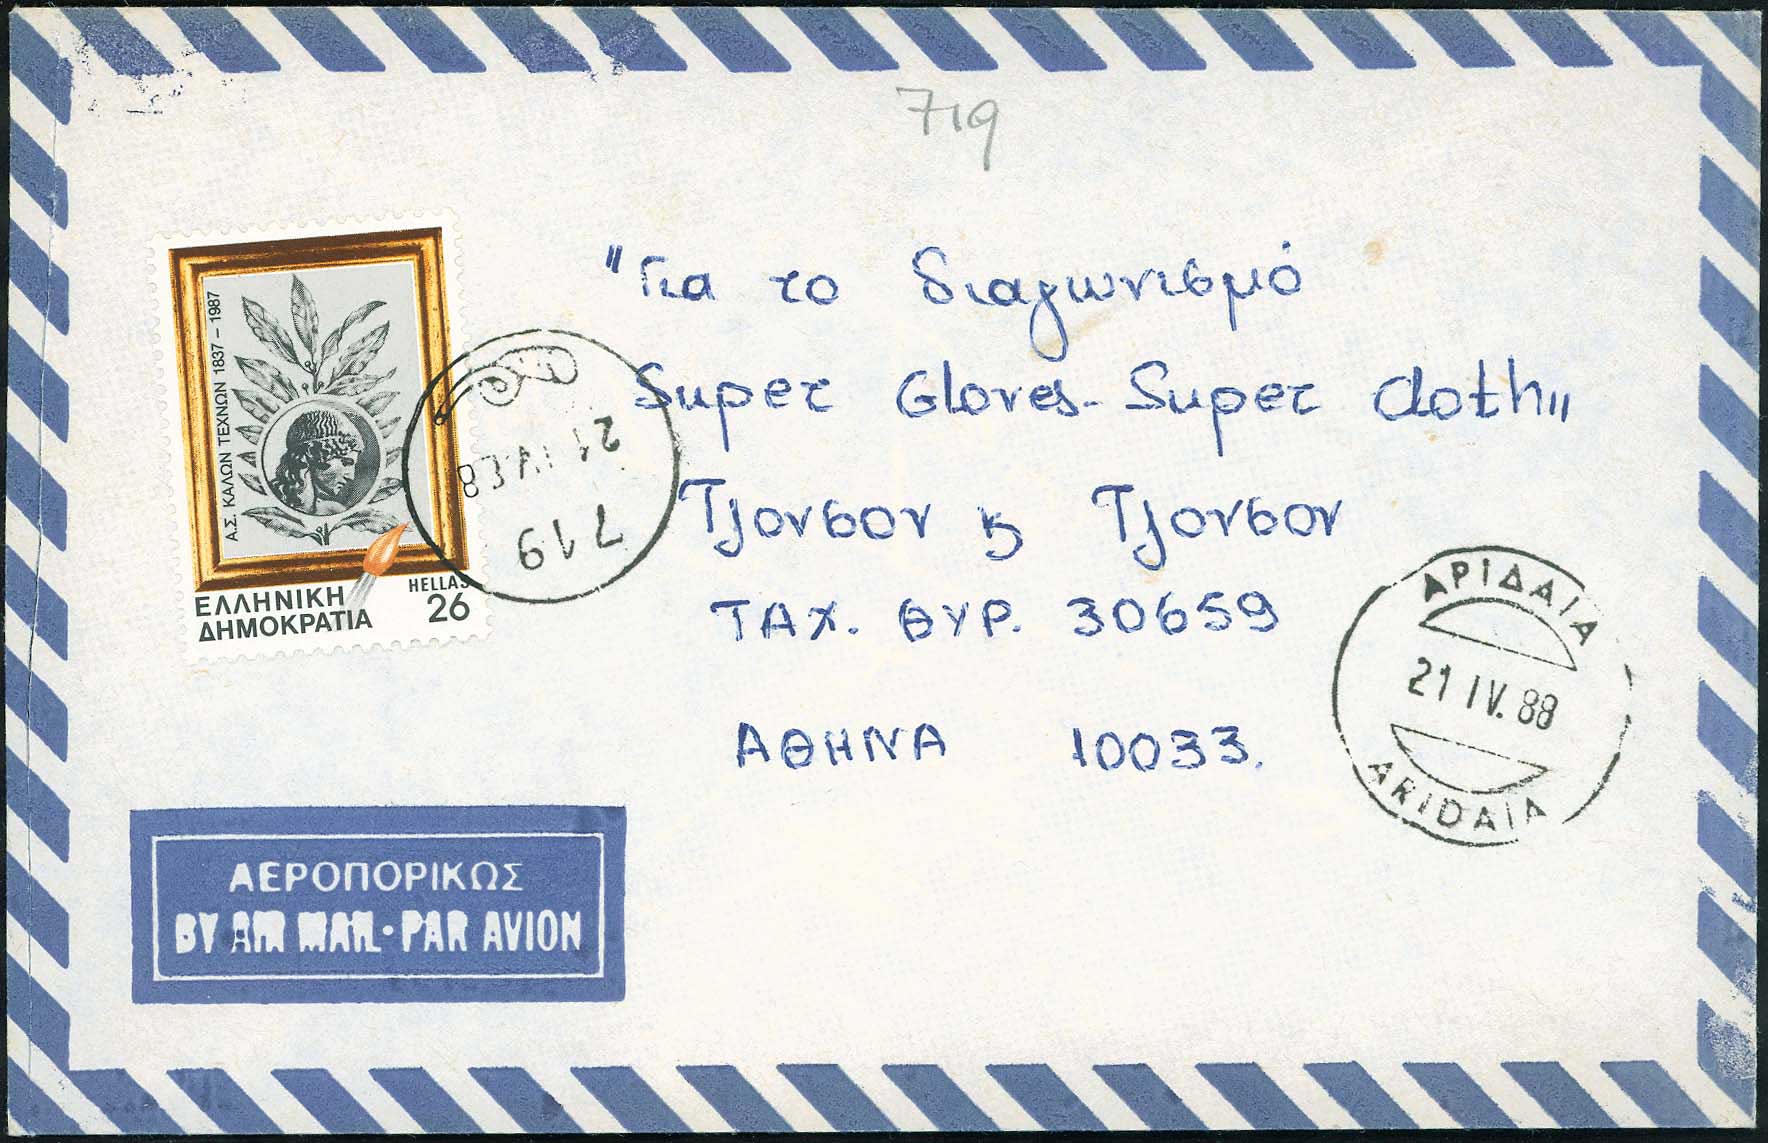 719
"Για το διαγωνισμό
Super Gloves - Super Cloth"
Τζονσον & Τζονσον
ΤΑΧ. ΘΥΡ. 30659
ΑΘΗΝΑ 10033.
Α.Σ. ΚΑΛΩΝ ΤΕΧΝΩΝ 1837 - 1987
HELLAS
ΕΛΛΗΝΙΚΗ
ΔΗΜΟΚΡΑΤΙΑ
26
719
21 IV 88
ΑΡΙΔΑΙΑ
21 IV. 88
ARIDAIA
ΑΕΡΟΠΟΡΙΚΩΣ
BY AIR MAIL · PAR AVION